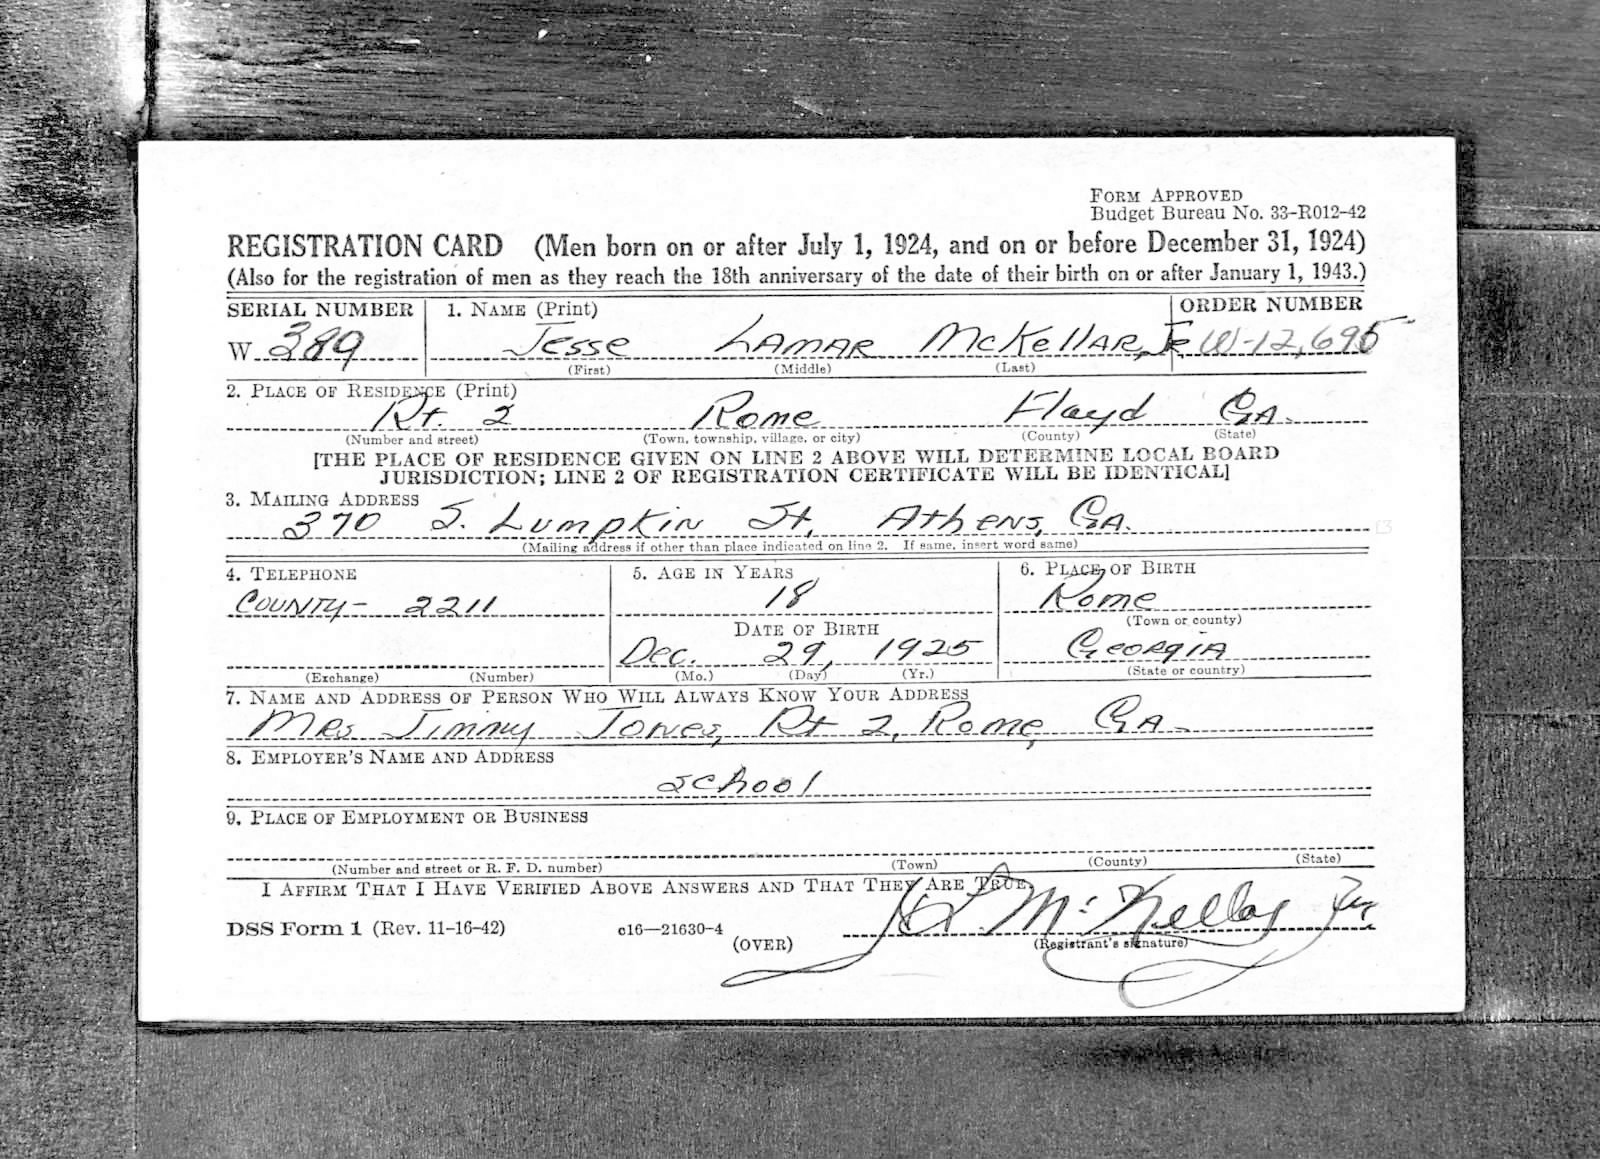 FORM APPROVED
Budget Bureau No. 33-R012-42
REGISTRATION CARD (Men born on or after July 1, 1924, and on or before December 31, 1924)
(Also for the registration of men as they reach the 18th anniversary of the date of their birth on or after January 1, 1943.)
SERIAL NUMBER 1. NAME (Print) ORDER NUMBER
W 389 Jesse LAMAR McKellAR, JR W-12,695
(First) (Middle) (Last)
2. PLACE OF RESIDENCE (Print)
Rt. 2 Rome Floyd GA.
(Number and street) (Town, township, village, or city) (County) (State)
[THE PLACE OF RESIDENCE GIVEN ON LINE 2 ABOVE WILL DETERMINE LOCAL BOARD
JURISDICTION; LINE 2 OF REGISTRATION CERTIFICATE WILL BE IDENTICAL]
3. MAILING ADDRESS
370 S. Lumpkin St, Athens, GA.
(Mailing address if other than place indicated on line 2. If same, insert word same)
4. TELEPHONE 5. AGE IN YEARS 6. PLACE OF BIRTH
COUNTY- 2211 18 Rome
DATE OF BIRTH (Town or county)
Dec. 29, 1925 Georgia
(Exchange) (Number) (Mo.) (Day) (Yr.) (State or country)
7. NAME AND ADDRESS OF PERSON WHO WILL ALWAYS KNOW YOUR ADDRESS
MRs Jimmy Jones, Rt 2, Rome, GA.
8. EMPLOYER'S NAME AND ADDRESS
School
9. PLACE OF EMPLOYMENT OR BUSINESS
(Number and street or R. F. D. number) (Town) (County) (State)
I AFFIRM THAT I HAVE VERIFIED ABOVE ANSWERS AND THAT THEY ARE TRUE.
DSS Form 1 (Rev. 11-16-42) c16—21630-4 J L McKellar Jr.
(OVER) (Registrant's signature)